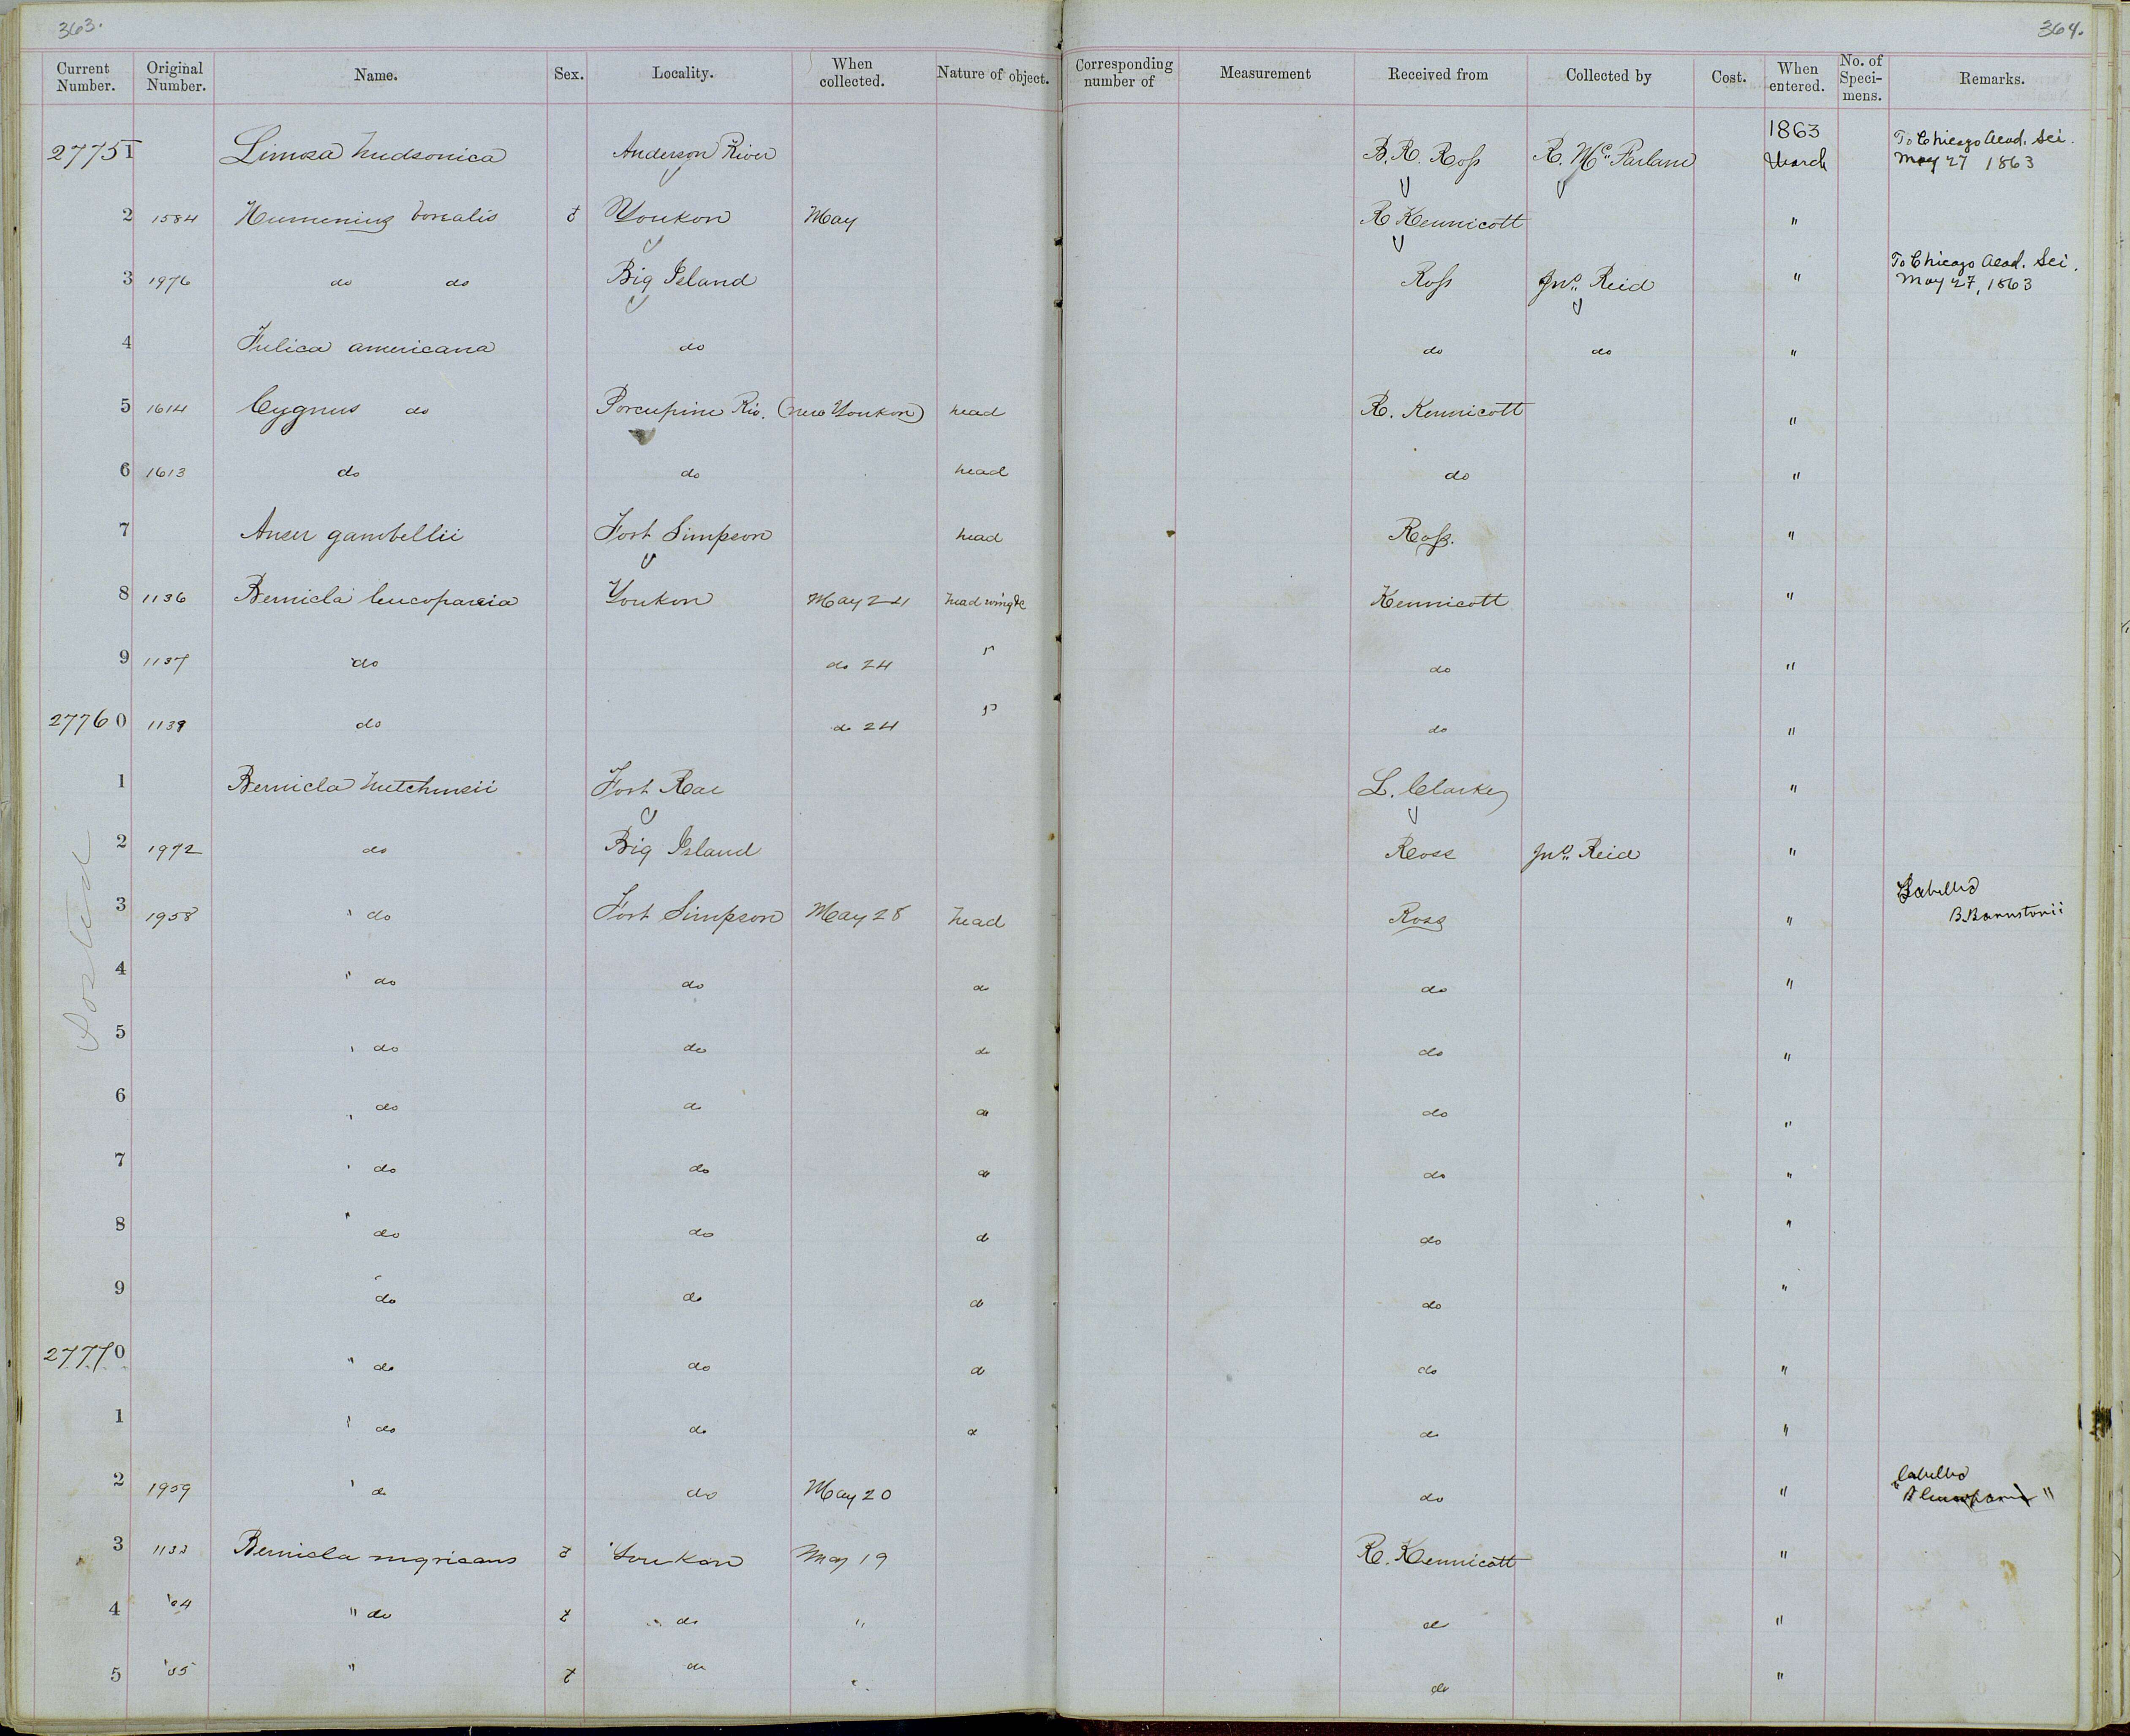 363. 364.
Current Number. Original Number. Name. Sex. Locality. When collected. Nature of object. Corresponding number of Measurement Received from Collected by Cost. When entered. No. of Specimens. Remarks.
27751 Limosa hudsonica Anderson River B. R. Ross R. McFarlane 1863 March To Chicago Acad. Sci. May 27 1863
2 1584 Numenius borealis ♂ Youkon May R Kennicott "
3 1976 do do Big Island Ross Jno. Reid " To Chicago Acad. Sci. May 27, 1863
4 Fulica americana do do do "
5 1614 Cygnus do Porcupine Riv. (near Youkon) head R. Kennicott "
6 1613 do do head do "
7 Anser gambellii Fort Simpson head Ross. "
8 1136 Bernicla leucopareia Youkon May 24 head wing &c Kennicott "
9 1137 do do 24 " do "
27760 1139 do do 24 " do "
1 Bernicla hutchinsii Fort Rae L. Clarke "
2 1972 do Big Island Ross Jno. Reid "
3 1958 " do Fort Simpson May 28 head Ross " Labelled B. Barnstonii
4 " do do do do "
5 " do do do do "
6 " do do do do "
7 " do do do do "
8 " do do do do "
9 " do do do do "
27770 " do do do do "
1 " do do do do "
2 1959 " do do May 20 do " labelled "B leucoparia"
3 1133 Bernicla nigricans Youkon May 19 R. Kennicott "
4 '34 " do do " do "
5 '35 " do " do "
Posted